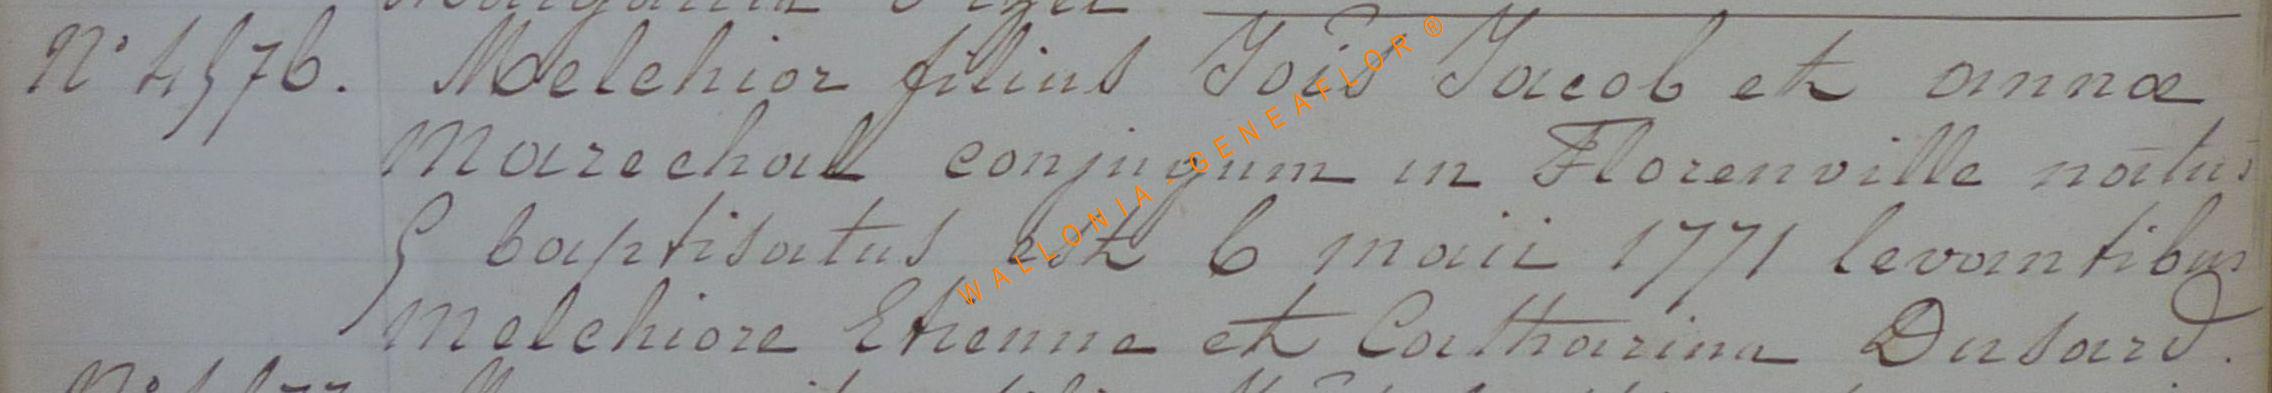 N° 4576. Melchior filius Jois Jacob et annæ
Marechal conjugum in Florenville natus
5 baptisatus est 6 maii 1771 levantibus
Melchiore Etienne et Catharina Dusard.
WALLONIA-GENEAFLOR®